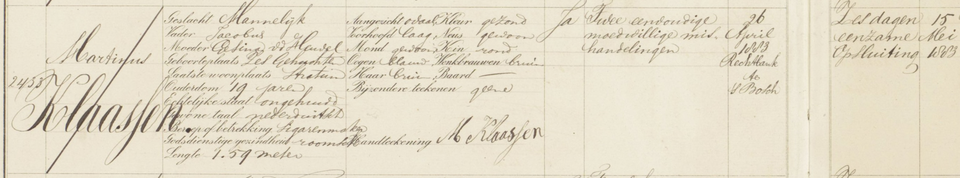 2453
Martinus
Klaassen.
Geslacht Mannelijk
Vader Jacobus
Moeder
Geboorteplaats
Laatste woonplaats
Ouderdom 19 jaren
Echtelijke staat ongehuwd
Gewone taal nederduitsch
Beroep of betrekking Sigarenmaker
Godsdienstige gezindheid roomsch
Lengte 1.59 meter
Aangezicht ovaal Kleur gezond
Voorhoofd laag Neus gewoon
Mond gewoon Kin rond
Oogen blauw Wenkbrauwen bruin
Haar bruin Baard —
Bijzondere teekenen geene
Handteekening M Klaassen
Ja
Twee eenvoudige
moedwillige mis-
handelingen
26
April
1883
Rechtbank
te
's Bosch
Zes dagen
eenzame
Opsluiting
15
Mei
1883